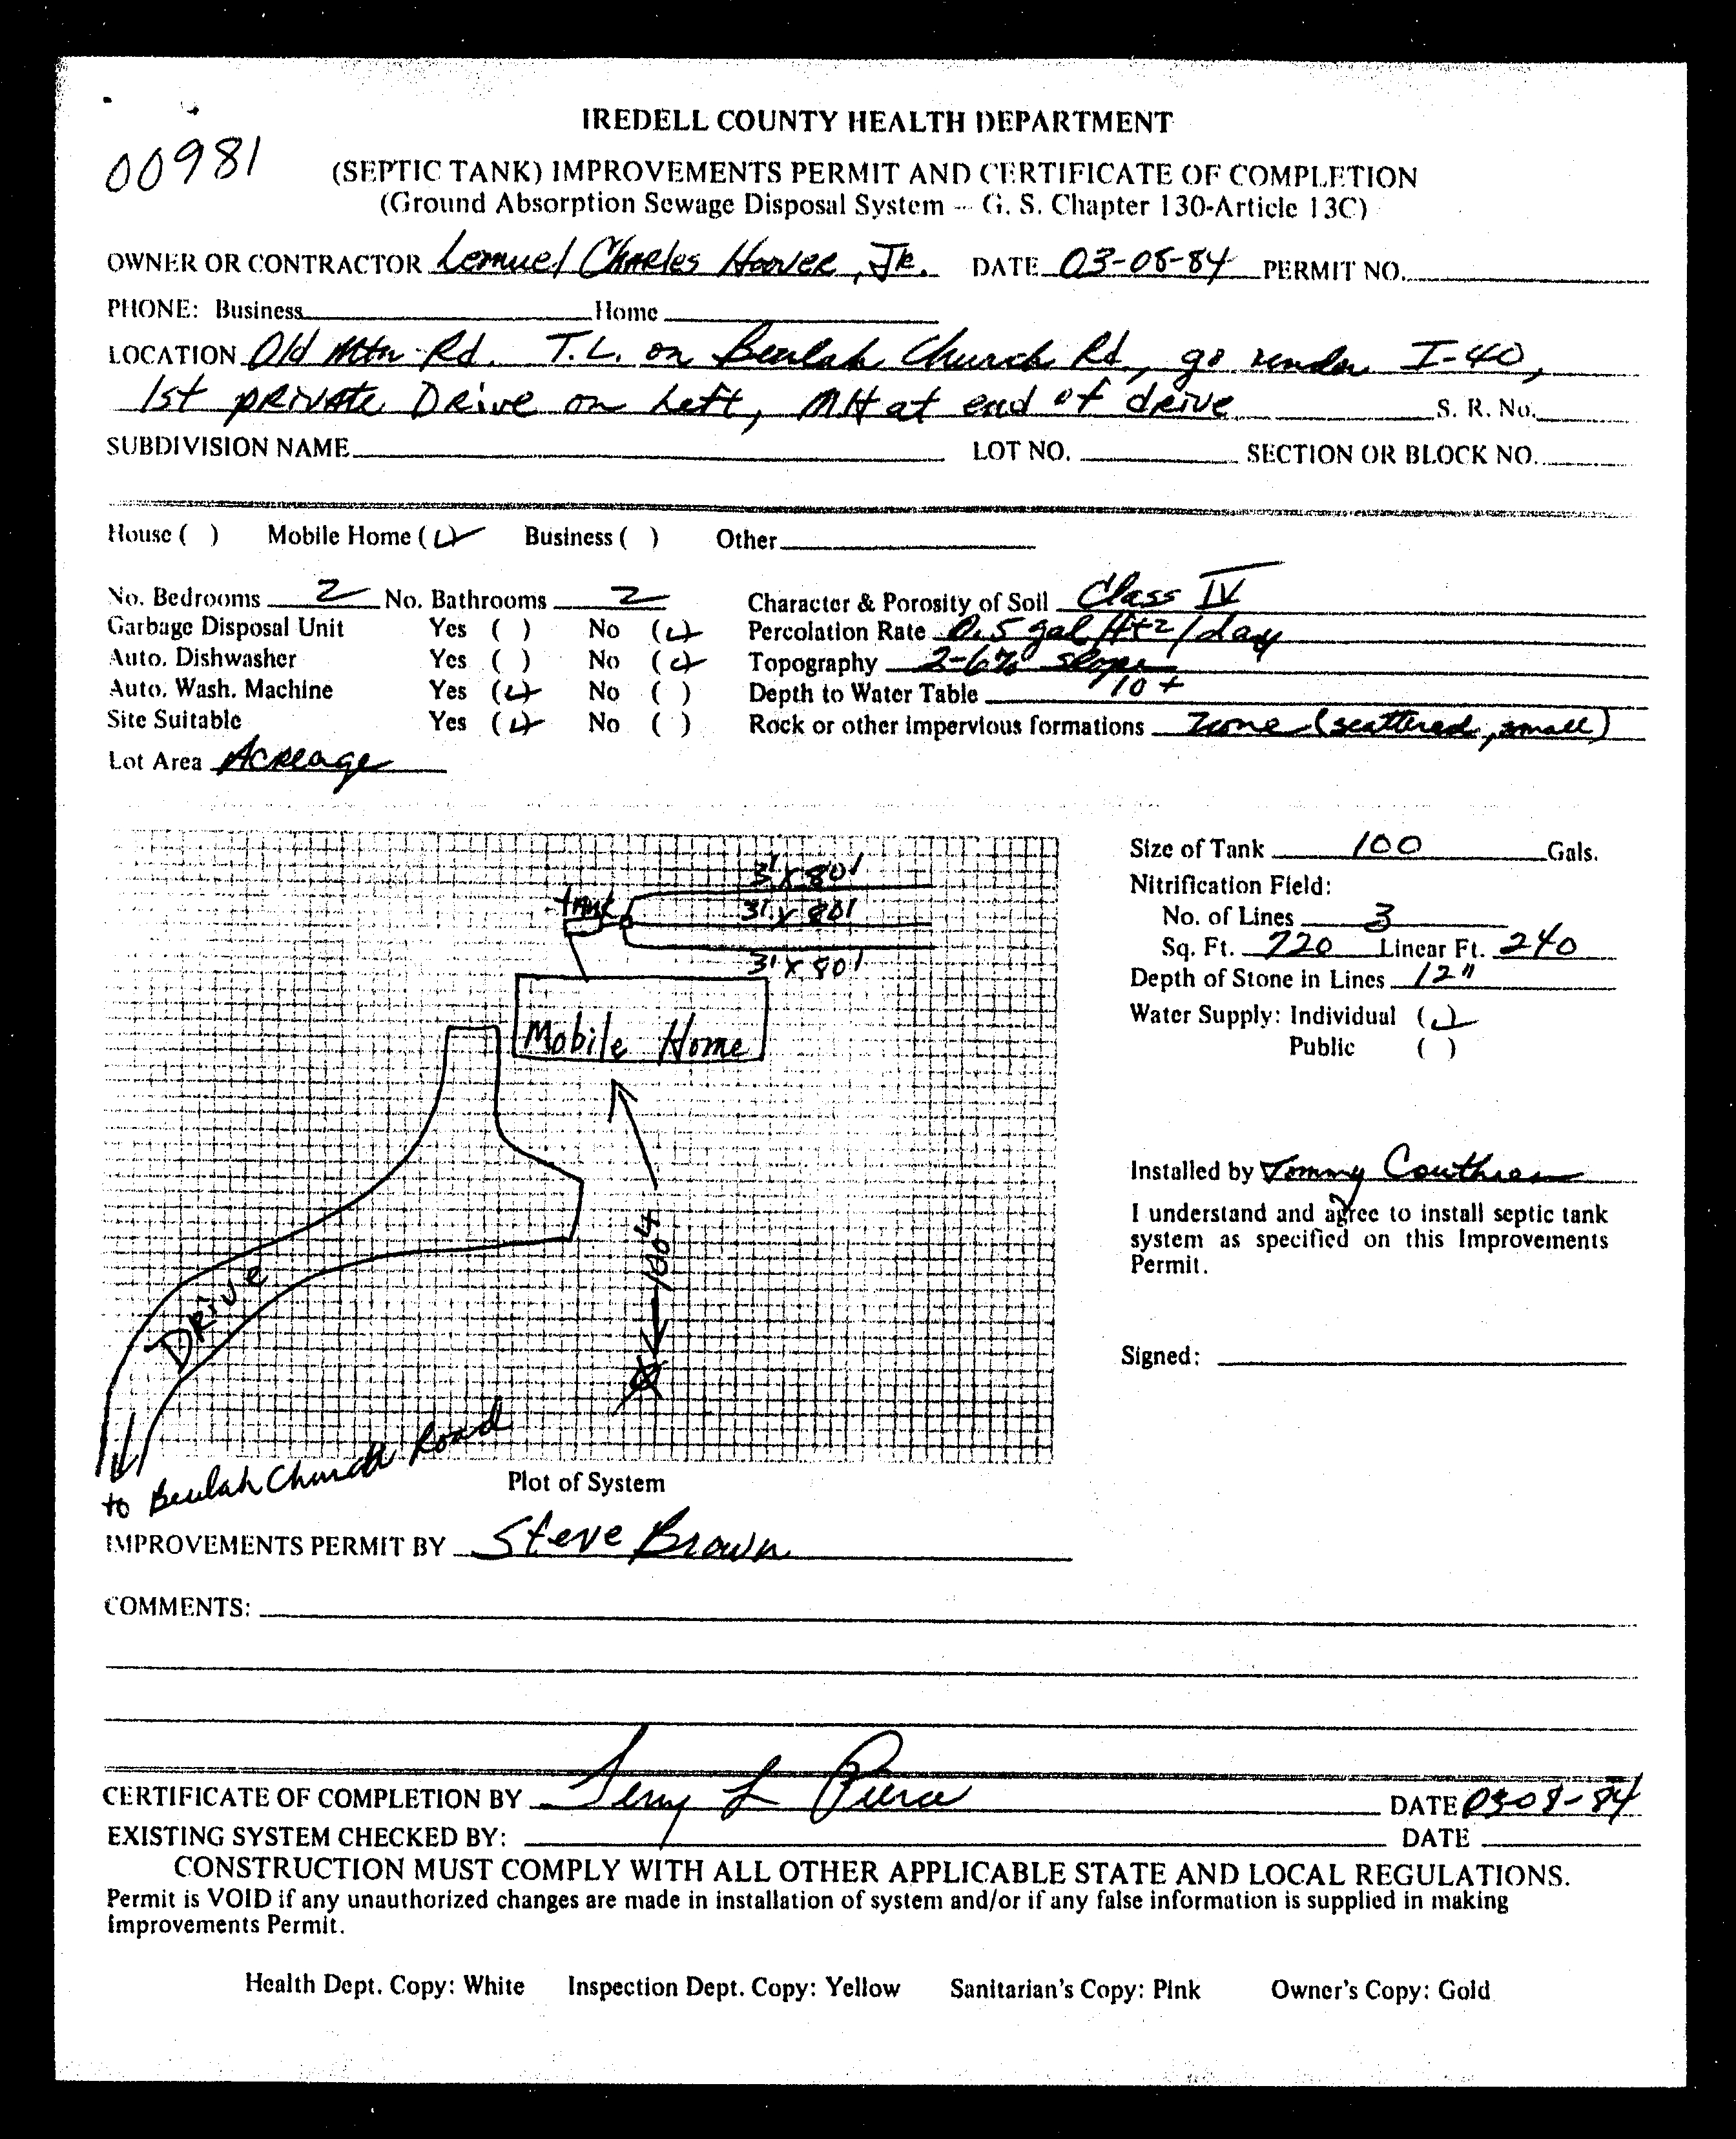 IREDELL COUNTY HEALTH DEPARTMENT
00981
(SEPTIC TANK) IMPROVEMENTS PERMIT AND CERTIFICATE OF COMPLETION
(Ground Absorption Sewage Disposal System -- G. S. Chapter 130-Article 13C)
OWNER OR CONTRACTOR Lemuel Charles Hoover, Jr. DATE 03-08-84 PERMIT NO.
PHONE: Business Home
LOCATION Old Mtn Rd. T.L. on Beulah Church Rd, go under I-40,
1st private Drive on Left, MH at end of drive S. R. No.
SUBDIVISION NAME LOT NO. SECTION OR BLOCK NO.
House ( ) Mobile Home (✓) Business ( ) Other
No. Bedrooms 2 No. Bathrooms 2 Character & Porosity of Soil Class IV
Garbage Disposal Unit Yes ( ) No (✓) Percolation Rate 0.5 gal/ft2/day
Auto. Dishwasher Yes ( ) No (✓) Topography 2-6% slope
Auto. Wash. Machine Yes (✓) No ( ) Depth to Water Table 10+
Site Suitable Yes (✓) No ( ) Rock or other impervious formations (scattered, small)
Lot Area Acreage
Size of Tank 100 Gals.
Nitrification Field:
No. of Lines 3
Sq. Ft. 720 Linear Ft. 240
Depth of Stone in Lines 12"
Water Supply: Individual (✓)
Public ( )
3' x 80'
tank
3' x 80'
3' x 80'
Mobile Home
100+
Drive
to Beulah Church Road
Installed by Tommy
I understand and agree to install septic tank
system as specified on this Improvements
Permit.
Signed:
Plot of System
IMPROVEMENTS PERMIT BY Steve Brown
COMMENTS:
CERTIFICATE OF COMPLETION BY Terry L Pierce DATE 0308-84
EXISTING SYSTEM CHECKED BY: DATE
CONSTRUCTION MUST COMPLY WITH ALL OTHER APPLICABLE STATE AND LOCAL REGULATIONS.
Permit is VOID if any unauthorized changes are made in installation of system and/or if any false information is supplied in making
Improvements Permit.
Health Dept. Copy: White Inspection Dept. Copy: Yellow Sanitarian's Copy: Pink Owner's Copy: Gold